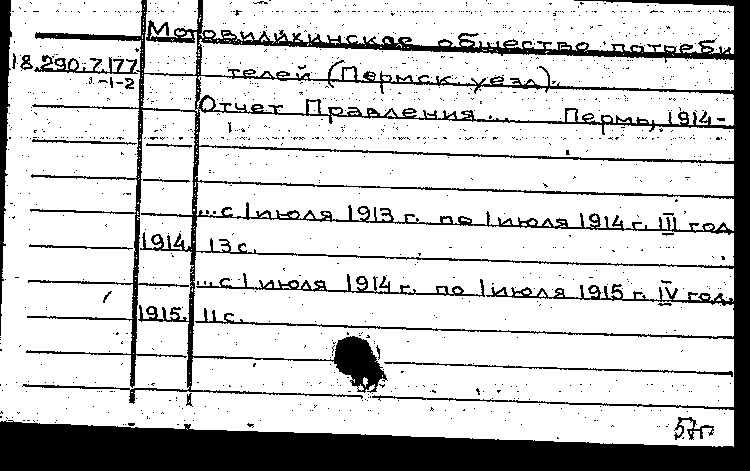 Мотовилихинское общество потреби
18.290.7.177 телей (Пермск. уезд).
-1-2
Отчет Правления ... Пермь, 1914-
...с 1 июля 1913 г. по 1 июля 1914 г. III год
1914. 13 с.
...с 1 июля 1914 г. по 1 июля 1915 г. IV год.
1915. 11 с.